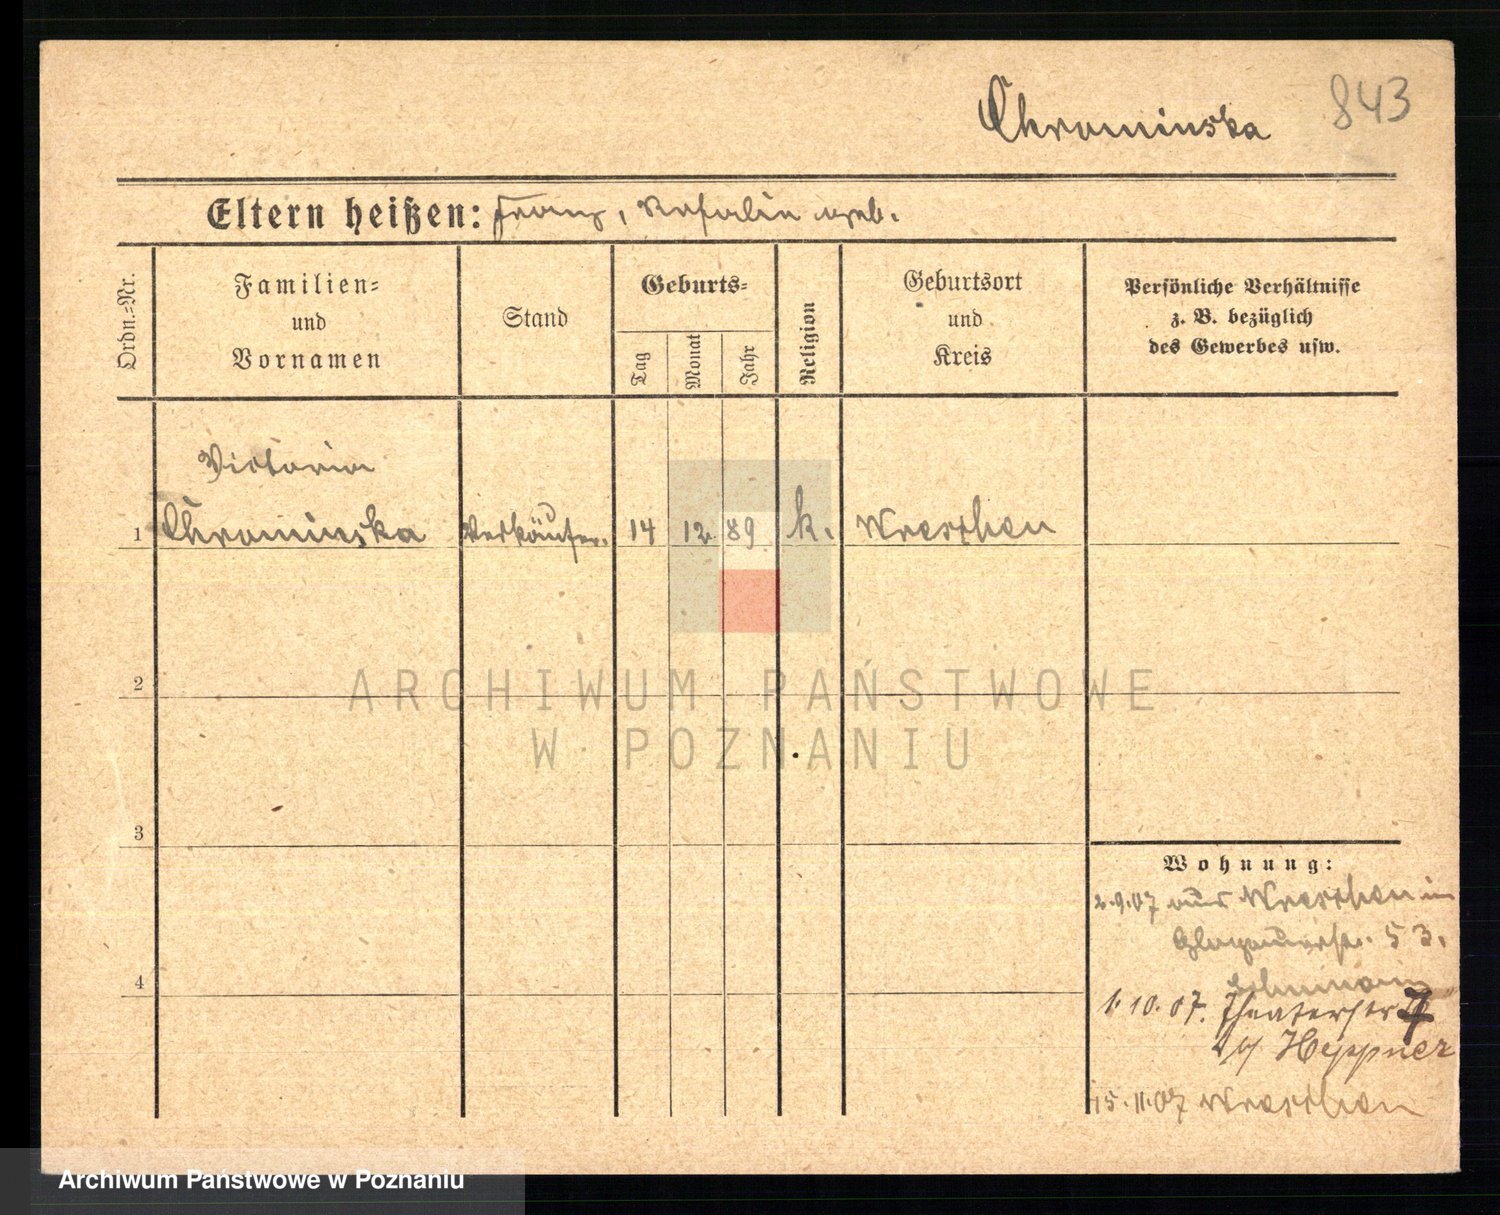 Chrominska
843
Eltern heißen: Franz, Rosalie geb.
Ordn.-Nr.
Familien-
und
Vornamen
Stand
Geburts-
Tag
Monat
Jahr
Religion
Geburtsort
und
Kreis
Persönliche Verhältnisse
z. B. bezüglich
des Gewerbes usw.
Victoria
1 Chrominska Verkäufer. 14 12. 89 k. Wreschen
2
3
4
Wohnung:
2.9.07 aus Wreschen in
Glogauerstr. 53.
1.10.07. Theaterstr 7
b/ Heppner
15.11.07 Wreschen
ARCHIWUM PAŃSTWOWE
W POZNANIU
Archiwum Państwowe w Poznaniu